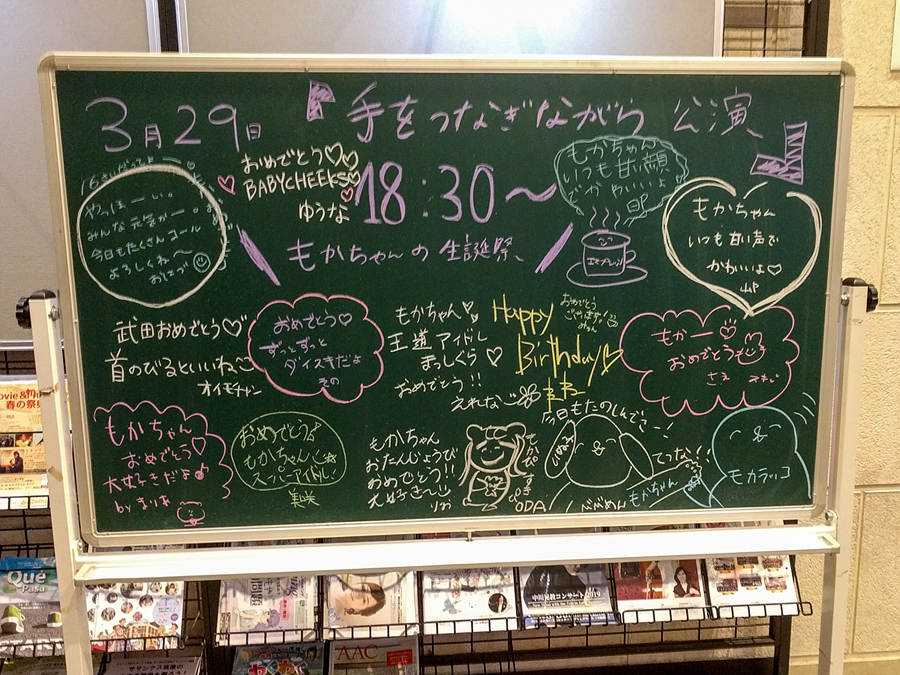 3月29日 『手をつなぎながら 公演』
18:30〜
もかちゃんの生誕祭
おめでとう♡
BABYCHEEKS♡
ゆうな
もかちゃん
いつも甘い顔
でかわいいよ
エスプレッソ
もかちゃん
いつも甘い声で
かわいいよ♡
16さいだって
やっほーい。
みんな元気かー。
今日もたくさんコール
よろしくね〜
武田おめでとう♡
首のびるといいね
オイモチャン
おめでとう♡
ずっとずっと
ダイスキだよ
その
もかちゃん♡
王道アイドル
まっしぐら♡
おめでとう!!
えれな
Happy
Birthday♡
おめでとう
ございます!
もかー
おめでとう
さえ
もかちゃん
おめでとう♡
大好きだよ♪
by まりな
おめでとう♪
もかちゃん
スーパーアイドル、
美咲
もかちゃん
おたんじょうび
おめでとう!!
大好き〜
りお
ODA
今日もたのしんで
べべめん
もかちゃん
てっな!!
モカラッコ
Movie &
春の祭典
Qué
Pasa
コンサート2019
AAC